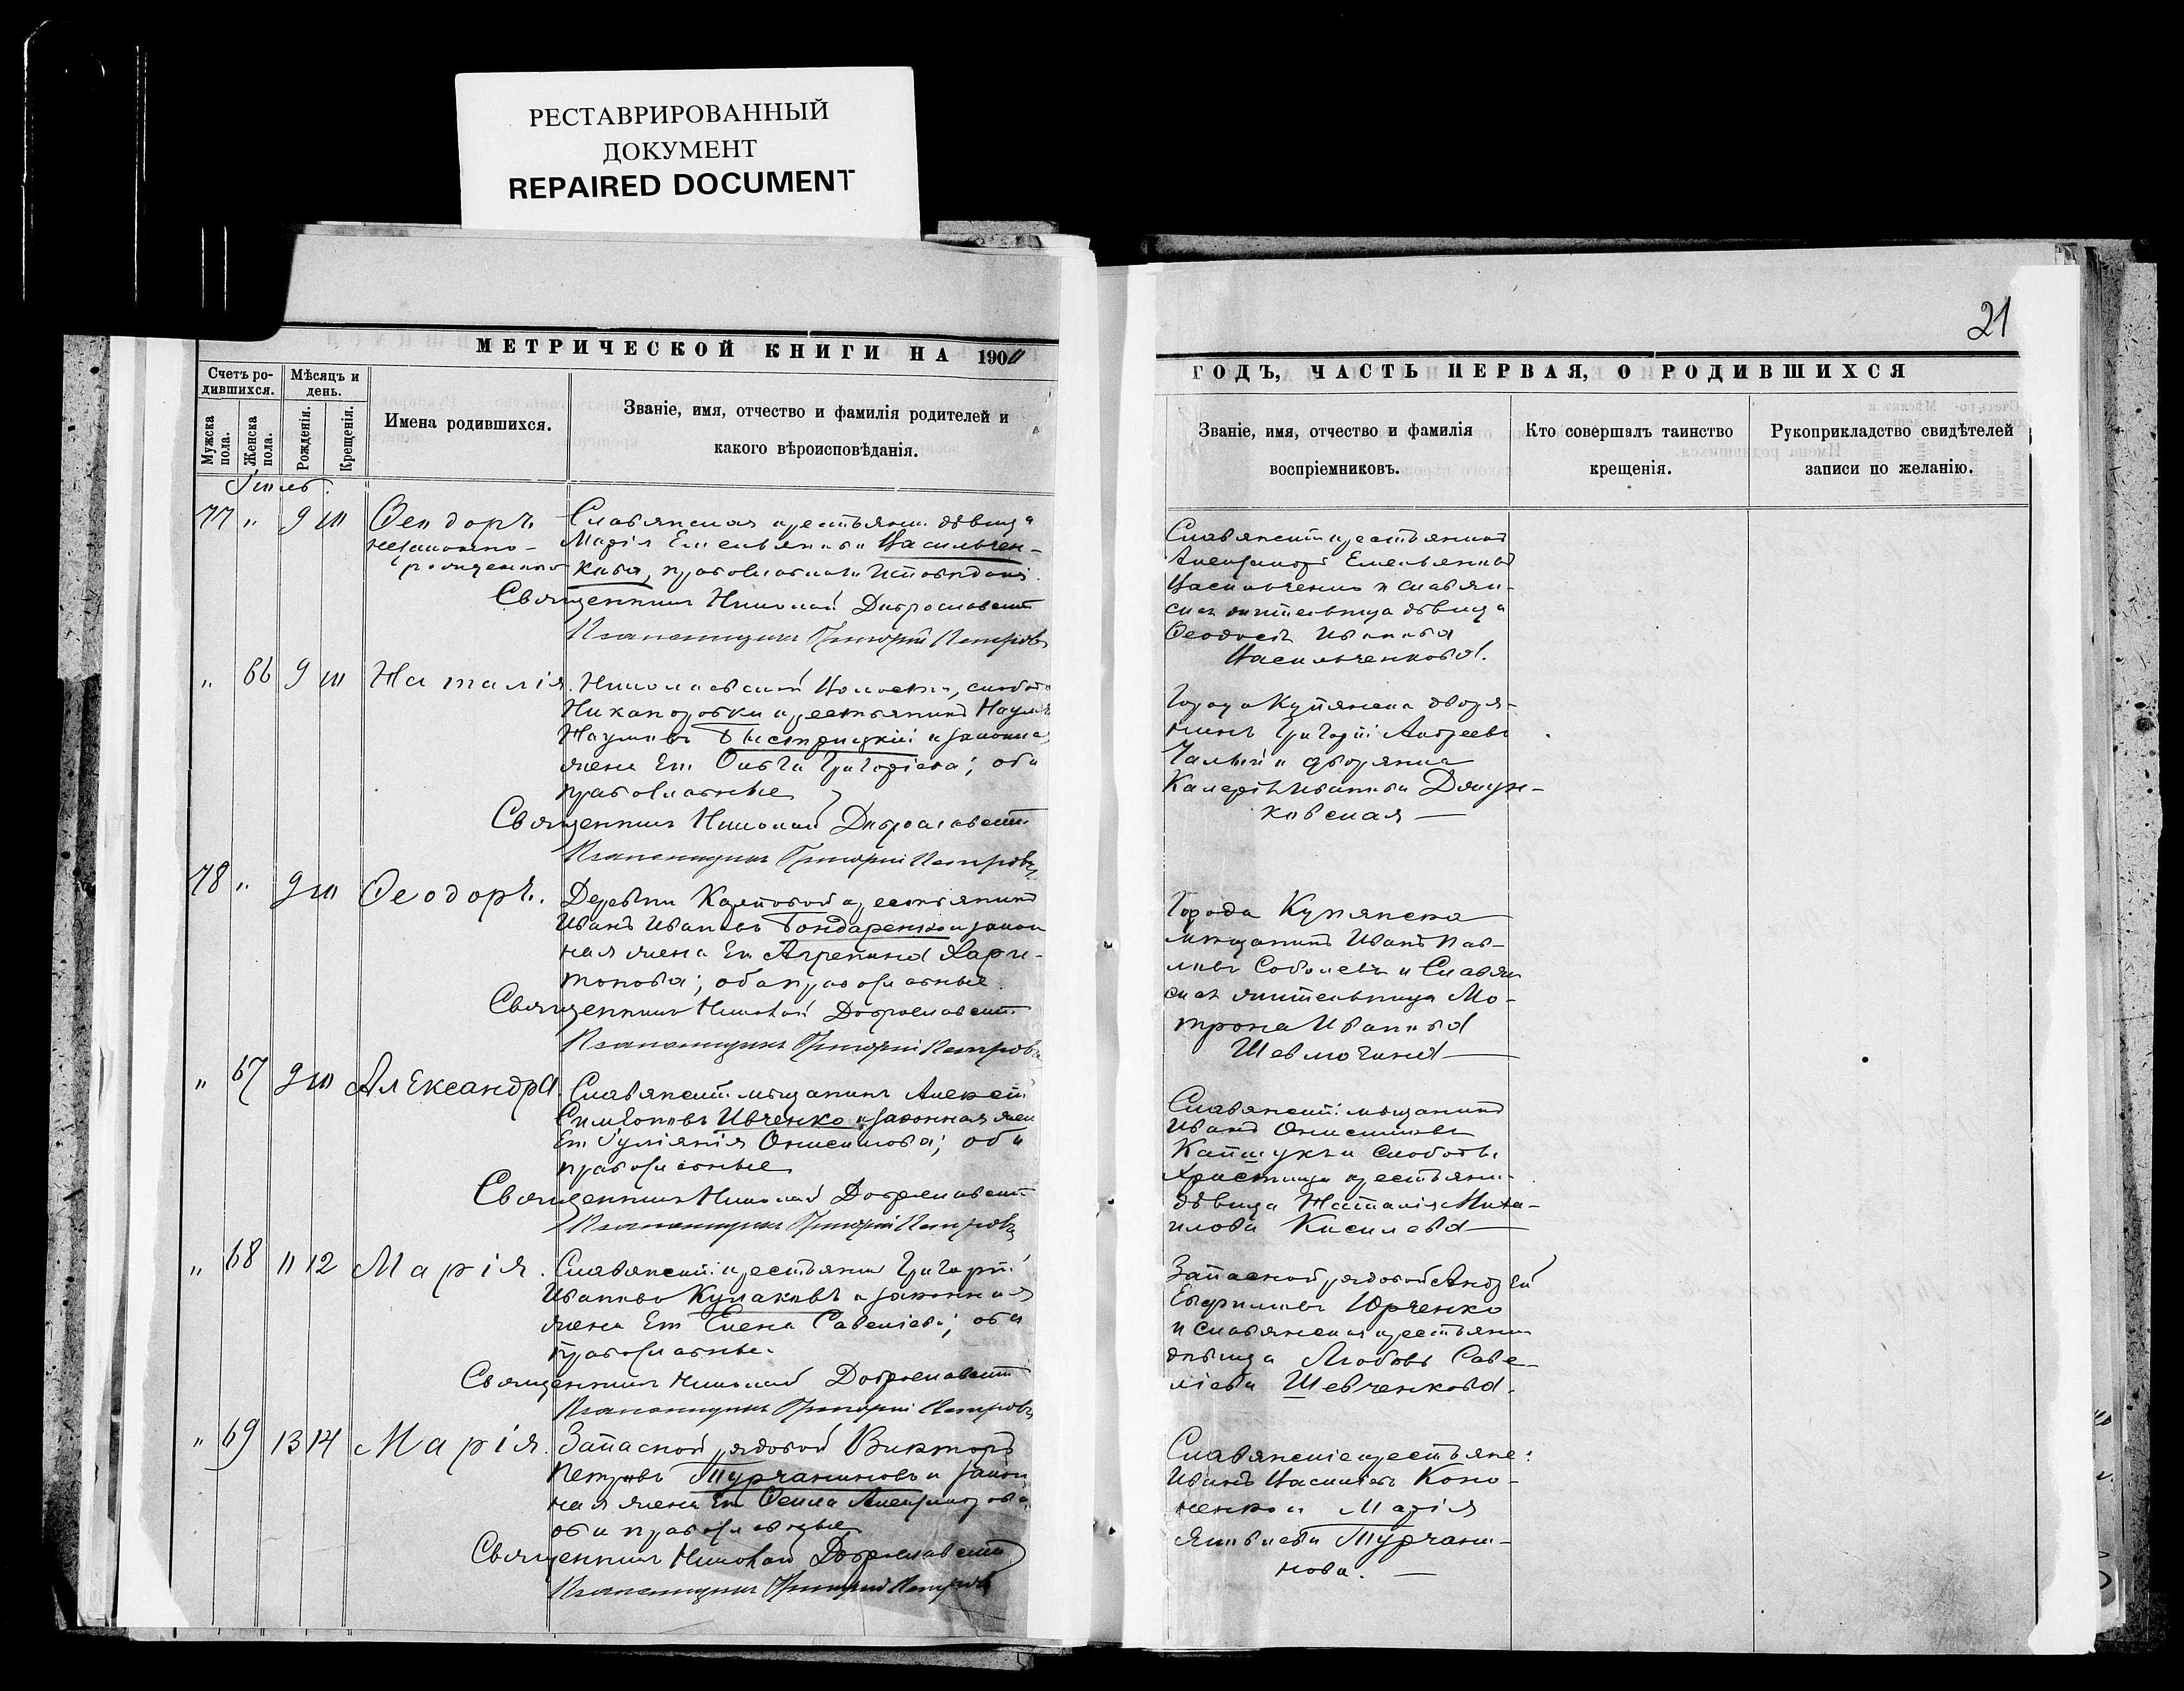 РЕСТАВРИРОВАННЫЙ
ДОКУМЕНТ
REPAIRED DOCUMENT
МЕТРИЧЕСКОЙ КНИГИ НА 190
Счетъ ро-
дившихся.
Мѣсяцъ и
день.
Мужска
пола.
Женска
пола.
Рожденія.
Крещенія.
Имена родившихся.
Званіе, имя, отчество и фамилія родителей и
какого вѣроисповѣданія.
77 " 9 10 Ѳеодоръ Славянская крестьянка дѣвица
незаконно- Марія Емельянова Васильчен-
рожденный кова, православнаго исповѣданія.
Священникъ Николай Доброславскій
Псаломщикъ Григорій Петровъ
" 66 9 10 Наталія. Николаевской волости, слободы
Никаноровки крестьянинъ Наумъ
Наумовъ Быстрицкій и законная
жена его Ольга Григоріева; оба
православные
Священникъ Николай Доброславскій
Псаломщикъ Григорій Петровъ
78 " 9 10 Ѳеодоръ. Деревни Карповой крестьянинъ
Иванъ Ивановъ Бондаренко и закон
ная жена его Агрепина Хари-
тонова; оба православные.
Священникъ Николай Доброславскій
Псаломщикъ Григорій Петровъ
" 67 9 10 Александра Славянскій мѣщанинъ Алексѣй
Симеоновъ Ивченко и законная жена
его Іуліанія Онисимова; оба
православные
Священникъ Николай Доброславскій
Псаломщикъ Григорій Петровъ
" 68 11 12 Марія. Славянскій крестьянинъ Григорій
Ивановъ Кулаковъ и законная
жена его Елена Савеліева; оба
православные.
Священникъ Николай Доброславскій
Псаломщикъ Григорій Петровъ
" 69 13 14 Марія. Запасной рядовой Викторъ
Петровъ Турчаниновъ и закон
ная жена его Ѳекла Александрова
оба православные
Священникъ Николай Доброславскій
Псаломщикъ Григорій Петровъ
21
ГОДЪ, ЧАСТЬ ПЕРВАЯ, О РОДИВШИХСЯ
Званіе, имя, отчество и фамилія
воспріемниковъ.
Кто совершалъ таинство
крещенія.
Рукоприкладство свидѣтелей
записи по желанію.
Славянскій крестьянинъ
Александръ Емельяновъ
Васильченко и славян-
ская жительница дѣвица
Ѳеодосія Иванова
Васильченкова.
Города Купянска дворя-
нинъ Григорій Андреевъ
и дворянка
Валерія Иванова
ковская
Города Купянска
мѣщанинъ Иванъ Пав-
ловъ Соболевъ и Славян
ская жительница Мо-
трона Иванова
Славянскій мѣщанинъ
Иванъ Онисимовъ
и слободы
крестьянка
дѣвица Наталія Миха-
илова Киселева
Запасной рядовой Андрей
Ефимовъ Юрченко
и славянская крестьянка
дѣвица Любовь Саве-
ліева Шевченкова.
Славянскіе крестьяне:
Иванъ Васильевъ Коно-
ненко и Марія
Яковлева Турчани-
нова.